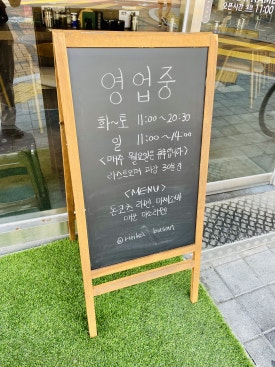 영업중
화~토 11:00~20:30
일 11:00~14:00
<매주 월요일은 휴무입니다>
라스트오더 마감 30분전
<MENU>
돈코츠 라멘, 마제소바
매운 미소라멘
busan
11:00